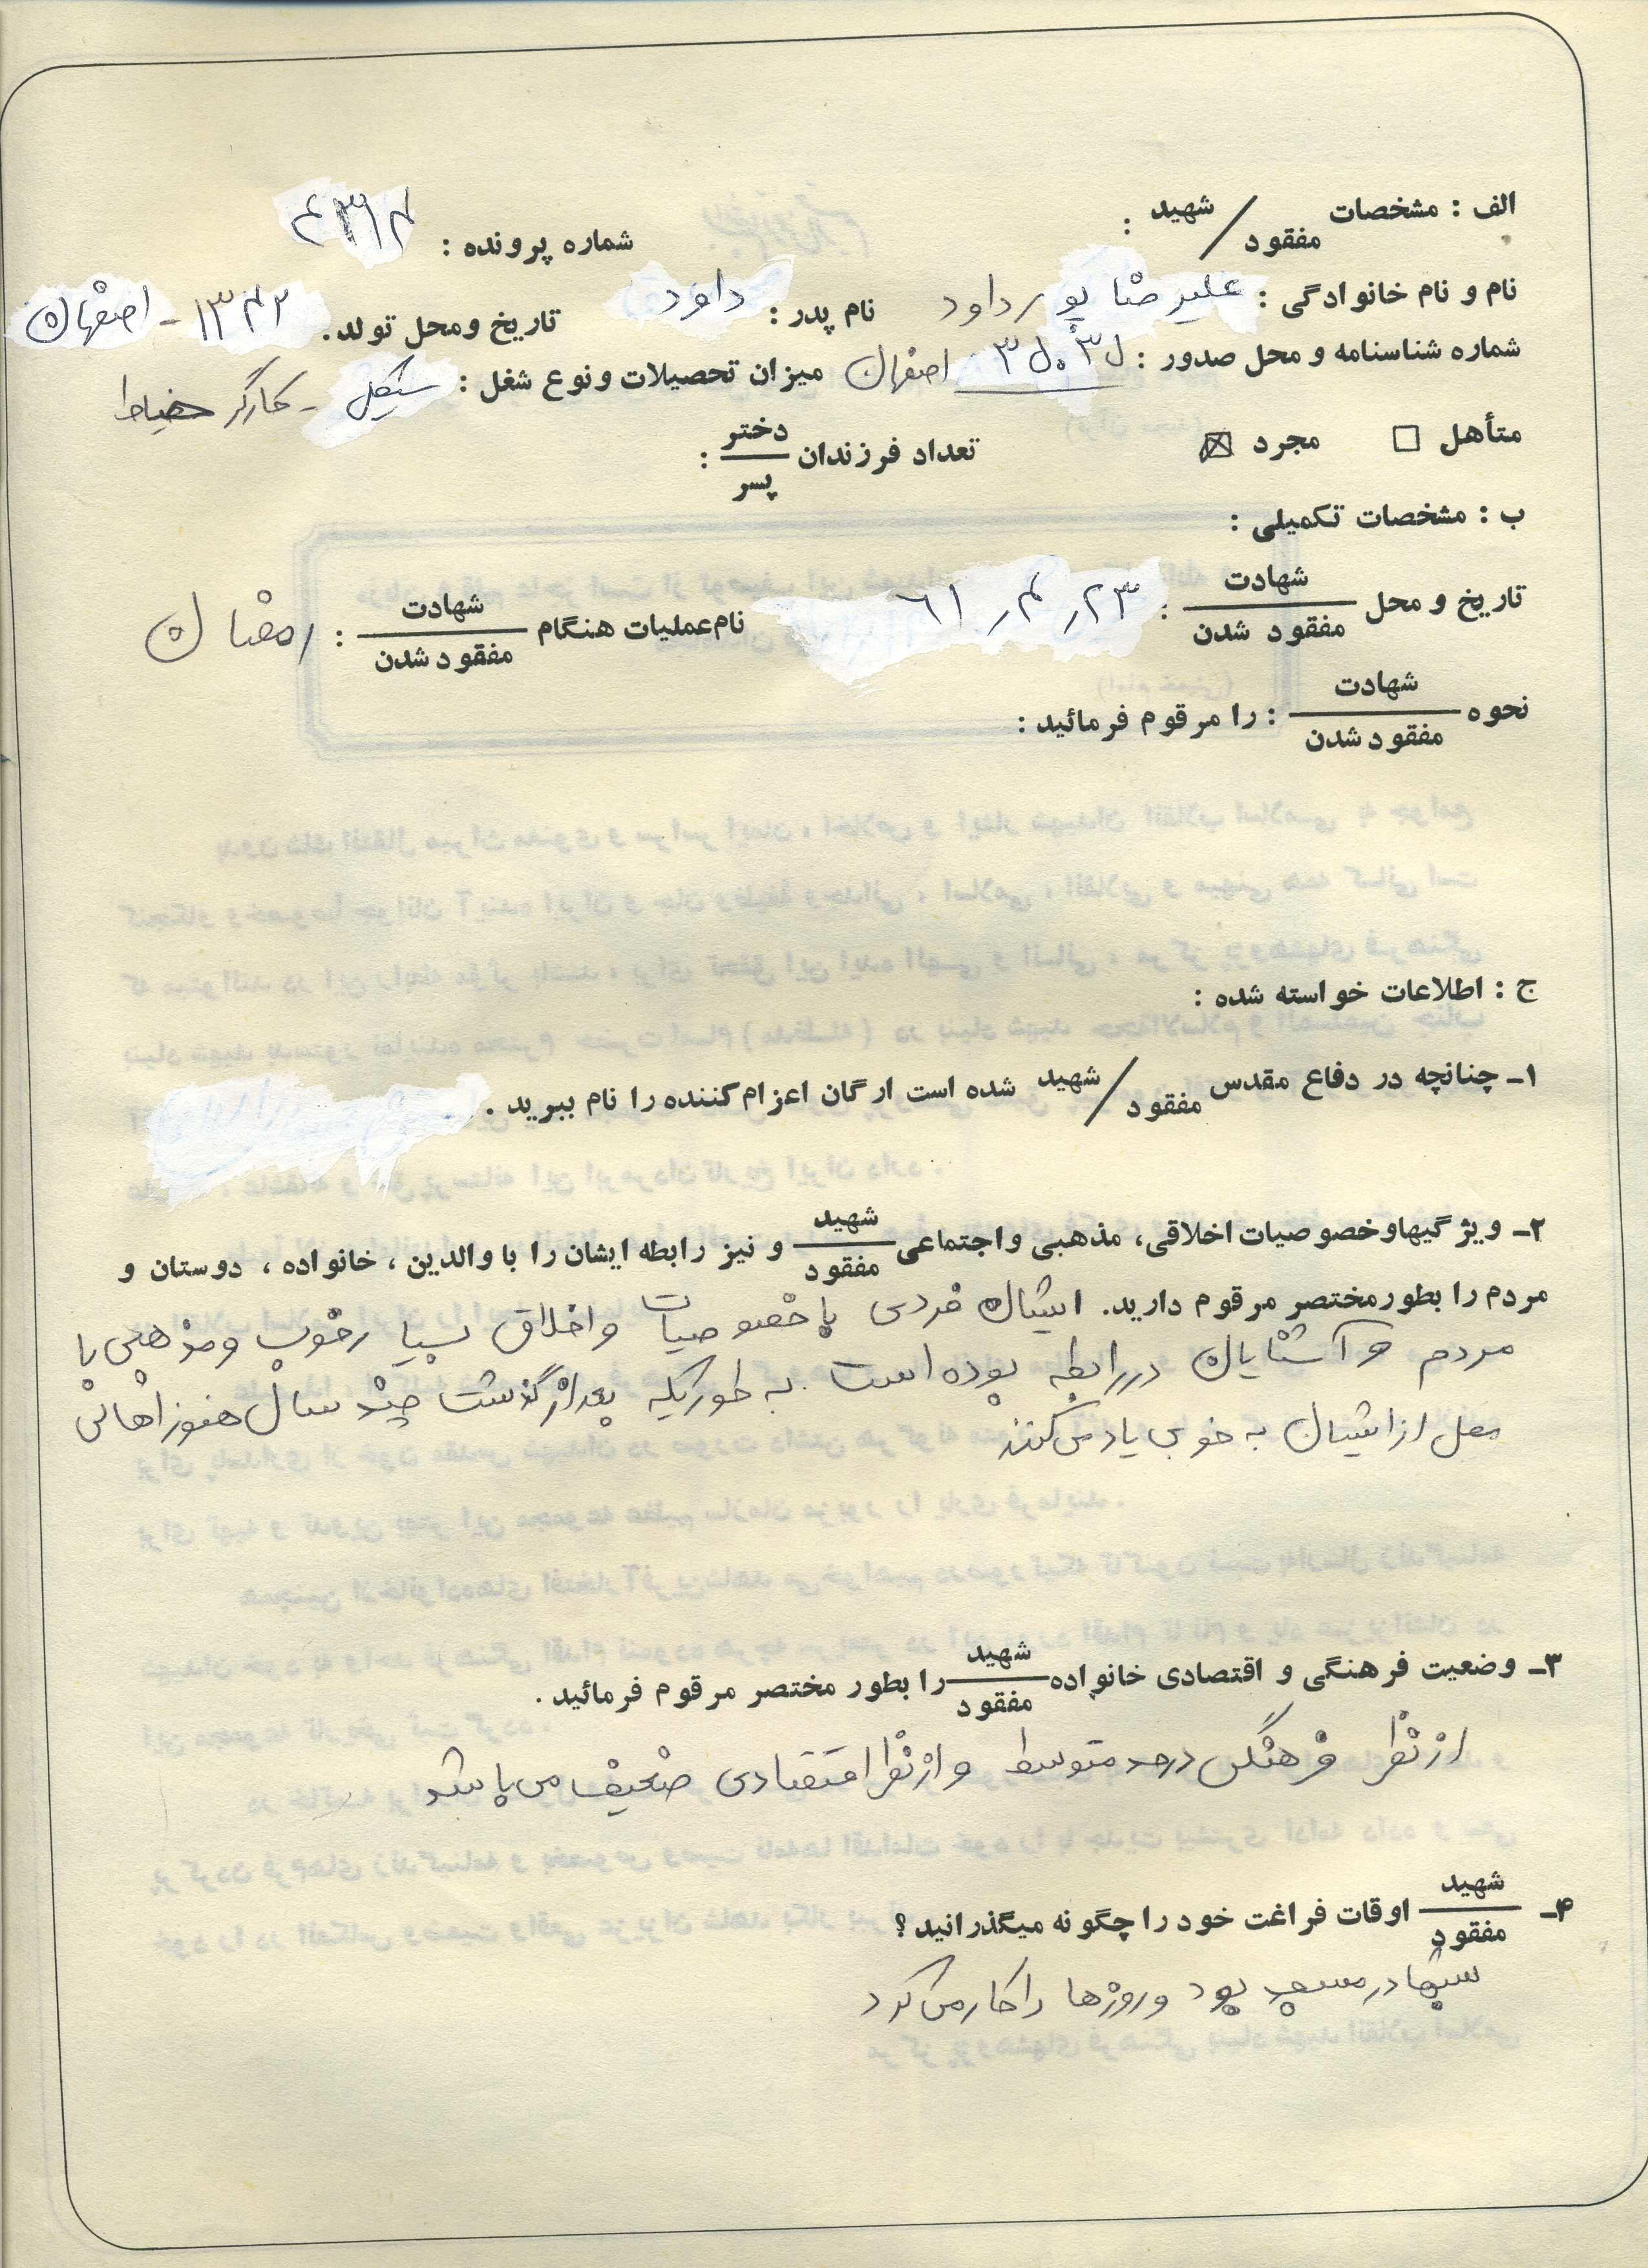 الف : مشخصات شهید / مفقود :
شماره پرونده :
نام و نام خانوادگی : علیرضا پورداود نام پدر : داود تاریخ ومحل تولد. ۱۳۴۲ - اصفهان
شماره شناسنامه و محل صدور : اصفهان میزان تحصیلات ونوع شغل : سیکل - کارگر خیاط
متأهل ☐ مجرد ☒ تعداد فرزندان دختر / پسر :
ب : مشخصات تکمیلی :
تاریخ و محل شهادت / مفقود شدن : ۶۱٫۴٫۲۳ نام عملیات هنگام شهادت / مفقود شدن : رمضان
نحوه شهادت / مفقود شدن : را مرقوم فرمائید :
ج : اطلاعات خواسته شده :
۱ـ چنانچه در دفاع مقدس شهید / مفقود شده است ارگان اعزام کننده را نام ببرید .
۲ـ ویژگیها وخصوصیات اخلاقی، مذهبی واجتماعی شهید / مفقود و نیز رابطه ایشان را با والدین ، خانواده ، دوستان و
مردم را بطور مختصر مرقوم دارید. ایشان فردی با خصوصیات و اخلاق بسیار خوب و مذهبی با
مردم و آشنایان در رابطه بوده است . به طوریکه بعد از گذشت چند سال هنوز اهالی
محل از ایشان به خوبی یاد می کنند
۳ـ وضعیت فرهنگی و اقتصادی خانواده شهید / مفقود را بطور مختصر مرقوم فرمائید .
از نظر فرهنگی در حد متوسط و از نظر اقتصادی ضعیف می باشد
۴ـ شهید / مفقود اوقات فراغت خود را چگونه میگذرانید ؟
شبها در مسجد بود و روزها را کار می کرد